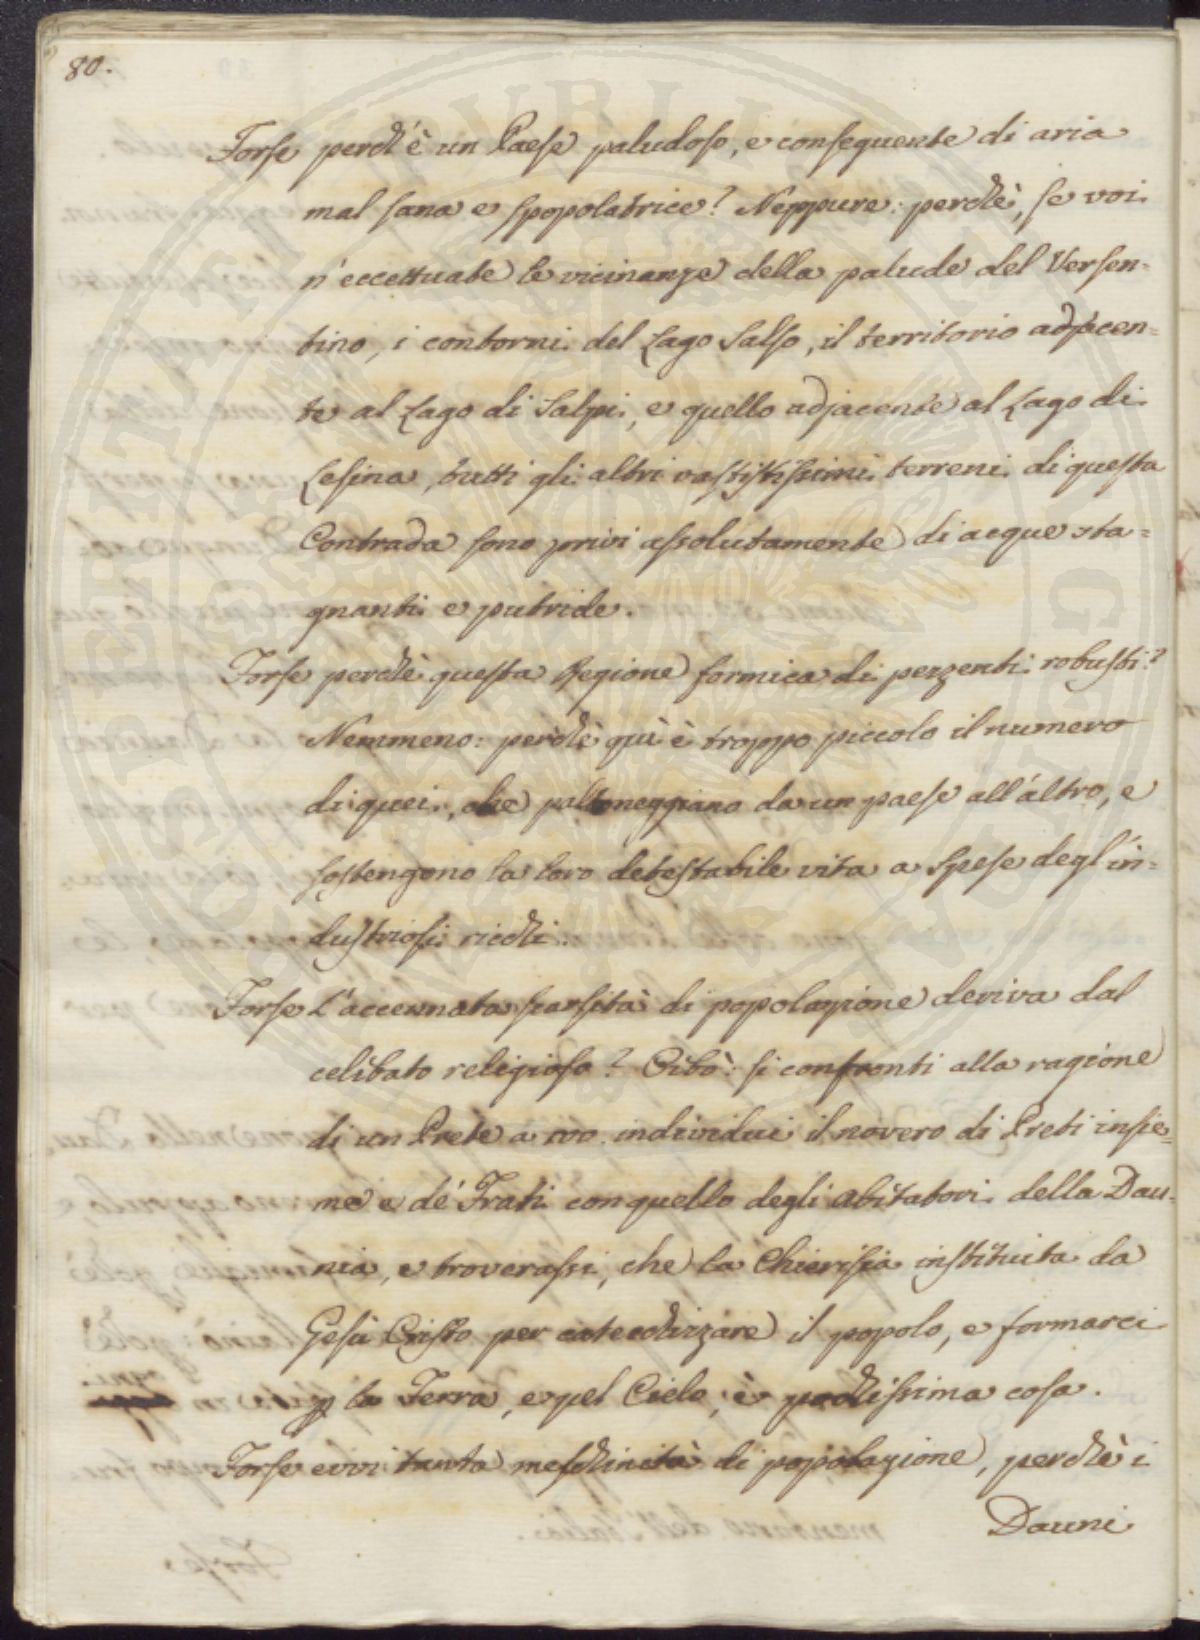 80.
Forse perch'è un Paese paludoso, e conseguente di aria
mal sana e spopolatrice? Neppure: perchè, se voi
n'eccettuate le vicinanze della palude del Versen=
tino, i contorni del Lago Salso, il territorio adjacen=
te al Lago di Salpi, e quello adjacente al Lago di
Lesina, tutti gli altri vastissimi terreni di questa
Contrada sono privi assolutamente di acque sta=
gnanti e putride.
Forse perchè questa Regione formica di pezzenti robusti?
Nemmeno: perchè quì è troppo piccolo il numero
di quei, che paltoneggiano da un paese all'altro, e
sostengono la loro detestabile vita a spese degl'in=
dustriosi ricchi.
Forse l'accennata scarsità di popolazione deriva dal
celibato religioso? Oibò: si confronti alla ragione
di un Prete a 100 individui il novero di Preti insie=
me e de' Frati con quello degli abitatori della Dau=
nia, e troverassi, che la Chierisia instituita da
Gesù Cristo per catechizzare il popolo, e formarci
p la Terra, e pel Cielo, è pochissima cosa.
Forse evvi tanta meschinità di popolazione, perchè i
Dauni